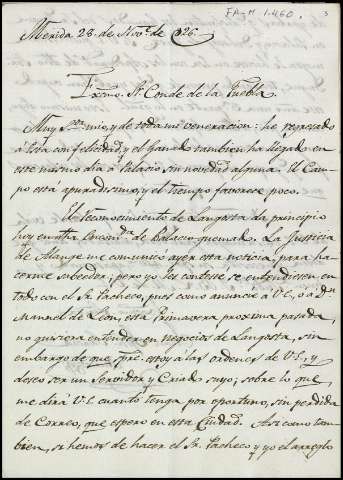 FA-M 1.460.
3
Merida 28. de Nov.e de 826.
Exmo. Sr. Conde de la Puebla.
Muy Sor. mio, y de toda mi veneracion: he regresado
á esta con felicidad, y el ganado tambien ha llegado en
este mismo dia á Palacio sin novedad alguna. El Cam-
po está apuradisimo, y el tiempo favorece poco.
El reconocimiento de Langosta da principio
hoy en otra Encom.da de Palacio quemado. La Justicia
de Alange me comunicó ayer esta noticia, para ha-
cerme sabedor; pero yo les contesté se entendiesen en
todo con el Sr. Pacheco, pues como anuncié á V.E., ó á Dn.
Manuel de Leon, esta Primavera proxima pasada,
no quisiera entender en negocios de Langosta, sin
embargo de que, spre. estoy á las ordenes de V.E., y
deseo ser un Servidor y Criado suyo; sobre lo que,
me dirá V.E. cuanto tenga por oportuno, sin perdida
de Correo, que espero en esta Ciudad. Asi como tam-
bien, si hemos de hacer el Sr. Pacheco y yo el arreglo